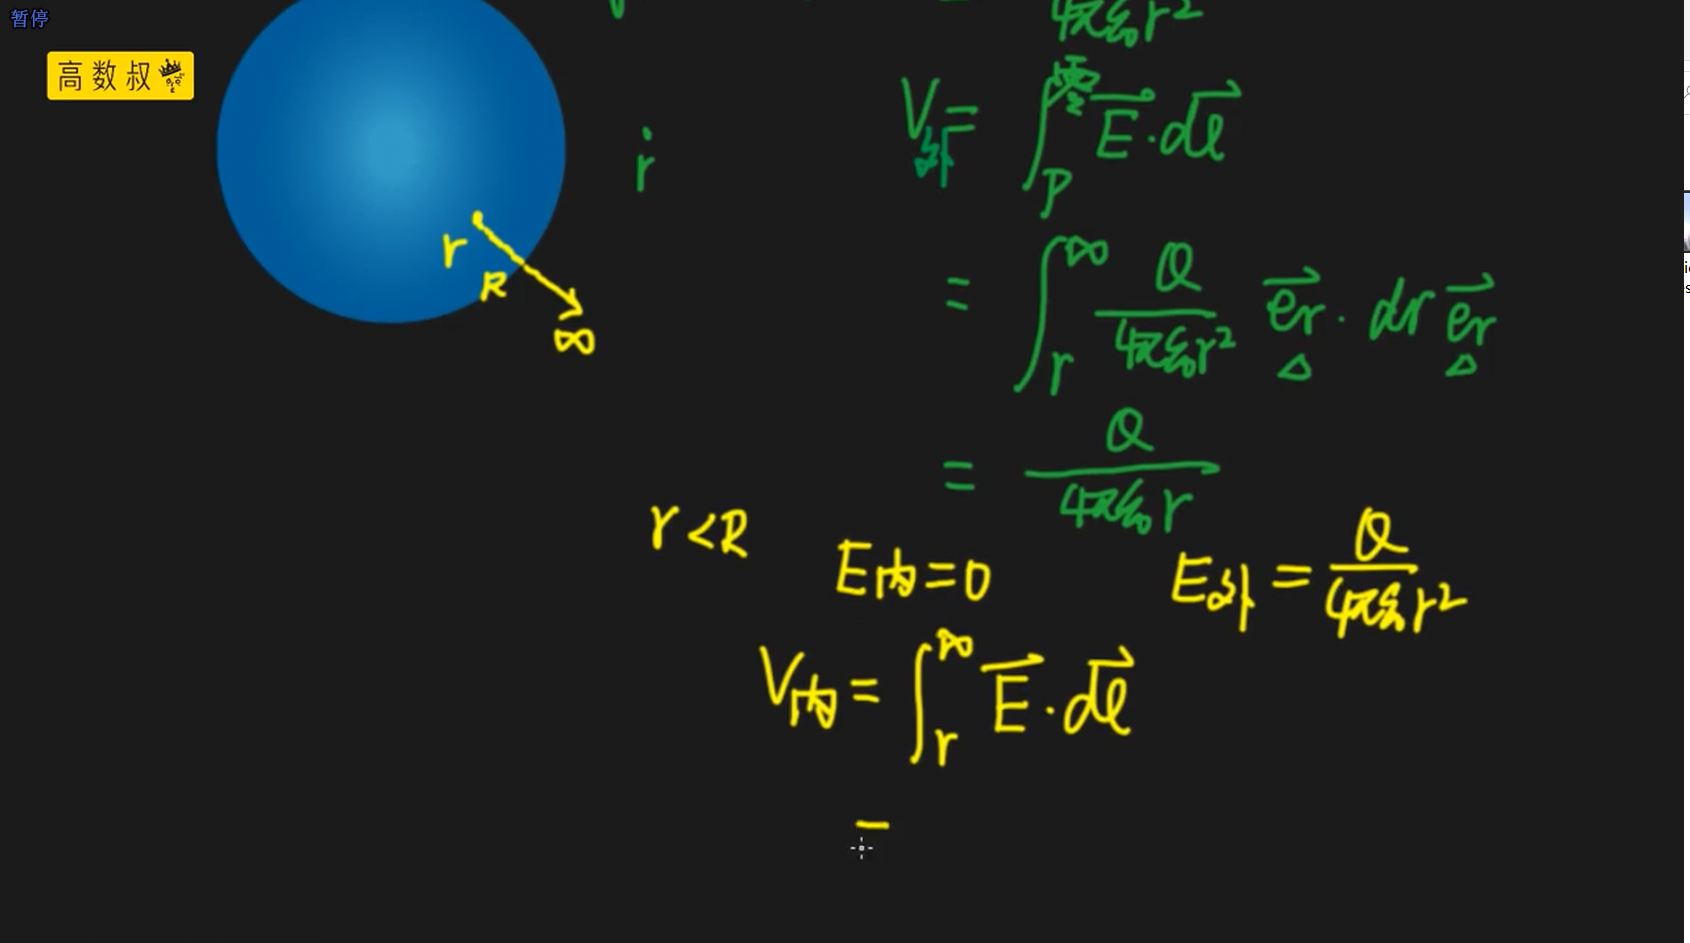 暂停
高数叔
4πε₀r²
V外 = ∫_P^零 E⃗·dl⃗
r
= ∫_r^∞ Q/(4πε₀r²) e⃗r · dr e⃗r
r
R
∞
= Q/(4πε₀r)
r<R
E内=0
E外 = Q/(4πε₀r²)
V内 = ∫_r^∞ E⃗·dl⃗